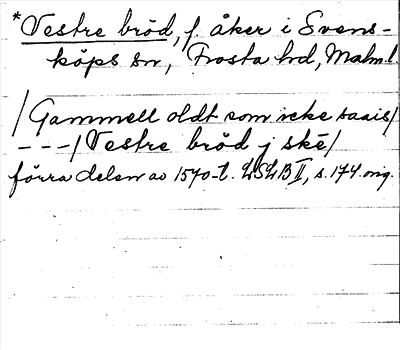 *Vestre bröd, f. åker i Svens-
köps sn, Frosta hd, Malm. l.
/Gammell oldt som icke saais/
---/Vestre bröd j skē/
förra delen av 1570-t. LSLB II, s. 174 orig.